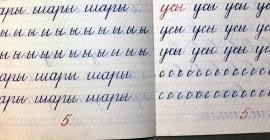 ары шары шары
ы ы ы ы ы ы ы ы ы ы
ы ы ы ы ы ы ы ы ы ы
ары шары шары
ары шары шары
5
усы усы усы усы
усы усы усы усы
усы усы усы усы
с с с с с с с с с с с с
усы усы усы усы
5